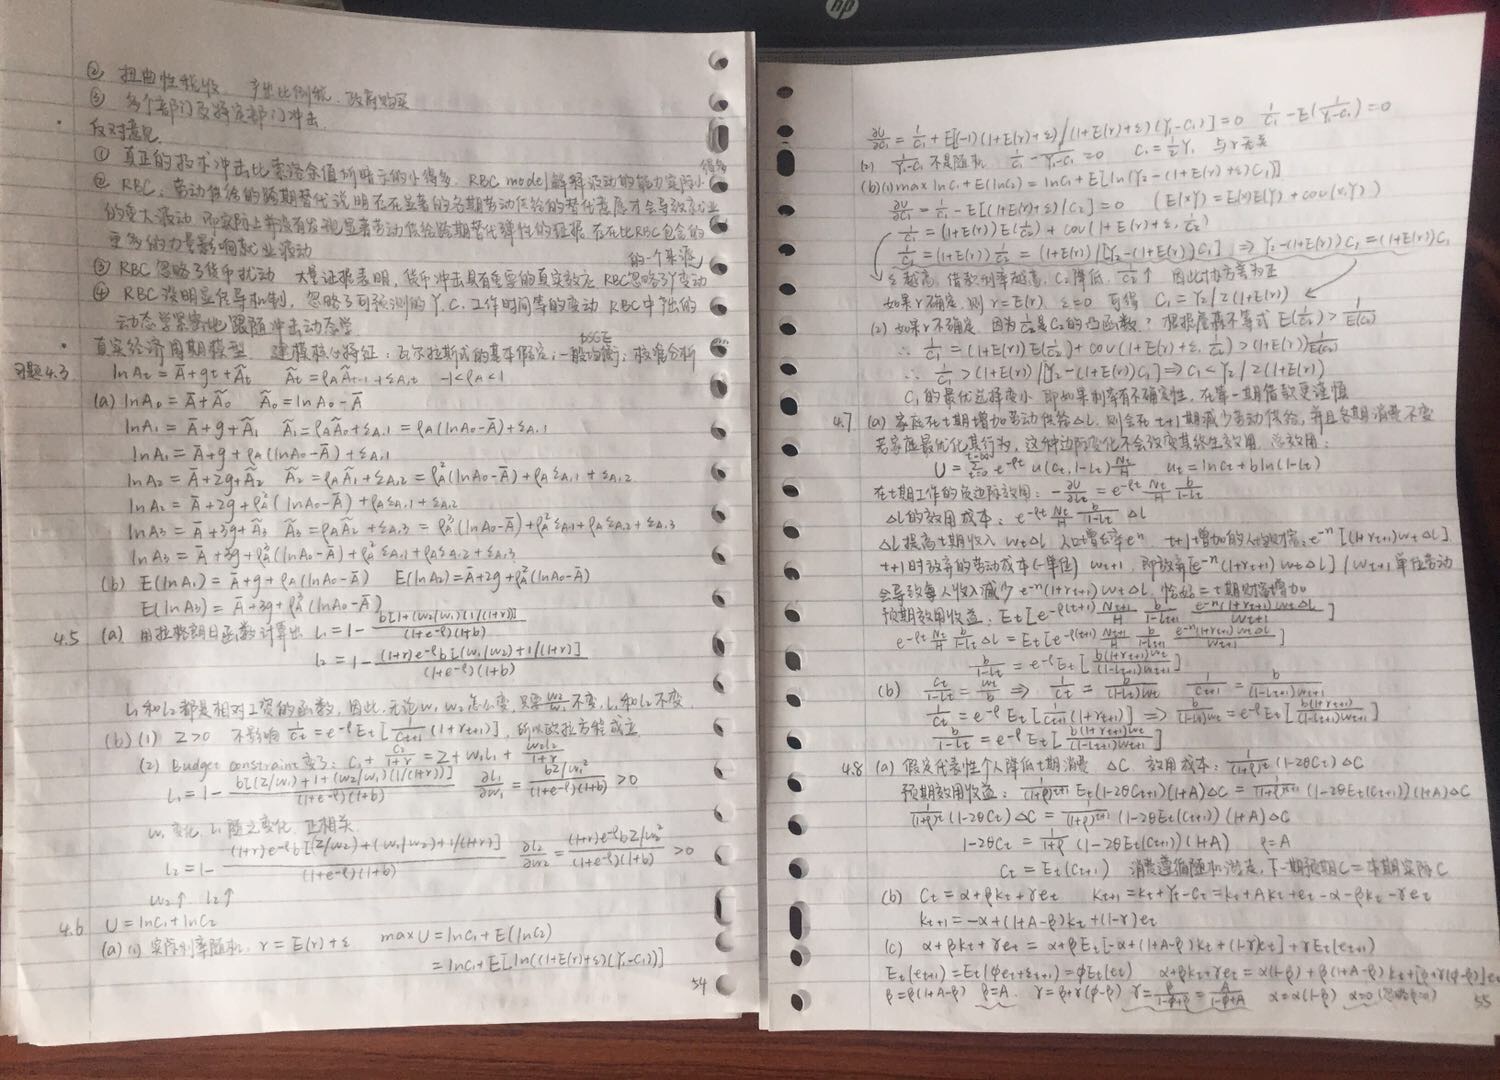 hp
② 扭曲性税收 产出比例税、政府购买
③ 多个部门及特定部门冲击
· 反对意见
① 真正的技术冲击比索洛余值所暗示的小得多. RBC model 解释波动的能力实际小得多
② RBC: 劳动供给的跨期替代说明存在显著的各期劳动供给的替代意愿才会导致就业
的重大波动 即实际上并没有发现显著劳动供给跨期替代弹性的证据 存在比RBC包含的
更多的力量影响就业波动
③ RBC 忽略了货币扰动 大量证据表明,货币冲击具有重要的真实效应 RBC忽略了Y变动的一个来源
④ RBC 没明显传导机制, 忽略了可预测的 Y. C. 工作时间等的变动 RBC中产出的
动态学紧密地跟随冲击动态学
· 真实经济周期模型 建模核心特征: 瓦尔拉斯式的基本假定; DSGE 一般均衡; 校准分析
习题4.3 lnAt = Ā+gt+Ãt Ãt = ρAÃt-1+εA,t -1<ρA<1
(a) lnA0 = Ā+Ã0 Ã0 = lnA0-Ā
lnA1 = Ā+g+Ã1 Ã1 = ρAÃ0+εA,1 = ρA(lnA0-Ā)+εA,1
lnA1 = Ā+g+ρA(lnA0-Ā)+εA,1
lnA2 = Ā+2g+Ã2 Ã2 = ρAÃ1+εA,2 = ρA²(lnA0-Ā)+ρAεA,1+εA,2
lnA2 = Ā+2g+ρA²(lnA0-Ā)+ρAεA,1+εA,2
lnA3 = Ā+3g+Ã3 Ã3 = ρAÃ2+εA,3 = ρA³(lnA0-Ā)+ρA²εA,1+ρAεA,2+εA,3
lnA3 = Ā+3g+ρA³(lnA0-Ā)+ρA²εA,1+ρAεA,2+εA,3
(b) E(lnA1) = Ā+g+ρA(lnA0-Ā) E(lnA2) = Ā+2g+ρA²(lnA0-Ā)
E(lnA3) = Ā+3g+ρA³(lnA0-Ā)
4.5 (a) 用拉格朗日函数计算出 l1 = 1 - b[1+(w2/w1)(1/(1+r))]/(1+e^-ρ)(1+b)
l2 = 1 - (1+r)e^-ρ b[(w1/w2)+1/(1+r)]/(1+e^-ρ)(1+b)
l1和l2都是相对工资的函数, 因此, 无论w1, w2怎么变, 只要w2/w1不变, l1和l2不变.
(b) (1) Z>0 不影响 1/Ct = e^-ρ Et[1/Ct+1 (1+rt+1)], 所以欧拉方程成立
(2) Budget constraint 变了: C1 + C2/1+r = Z+w1l1+w2l2/1+r
l1 = 1 - b[(Z/w1)+1+(w2/w1)(1/(1+r))]/(1+e^-ρ)(1+b) ∂l1/∂w1 = bZ/w1²/(1+e^-ρ)(1+b) >0
w1变化, l1随之变化, 正相关
l2 = 1 - (1+r)e^-ρ b[(Z/w2)+(w1/w2)+1/(1+r)]/(1+e^-ρ)(1+b) ∂l2/∂w2 = (1+r)e^-ρ bZ/w2²/(1+e^-ρ)(1+b) >0
w2↑ l2↑
4.6 U = lnC1+lnC2
(a) (1) 实际利率随机, r = E(r)+ε max U = lnC1+E(lnC2)
= lnC1+E[ln((1+E(r)+ε)(Y1-C1))]
54
∂U/∂C1 = 1/C1 + E[(-1)(1+E(r)+ε)/(1+E(r)+ε)(Y1-C1)] = 0 1/C1 - E(1/Y1-C1) = 0
(2) 1/Y1-C1 不是随机 1/C1 - 1/Y1-C1 = 0 C1 = 1/2 Y1 与r无关
(b) (1) max lnC1+E(lnC2) = lnC1+E[ln(Y2-(1+E(r)+ε)C1)]
∂U/∂C1 = 1/C1 - E[(1+E(r)+ε)/C2] = 0 (E(XY) = E(X)E(Y)+cov(X,Y))
1/C1 = (1+E(r))E(1/C2)+cov(1+E(r)+ε, 1/C2)
1/C1 = (1+E(r))1/C2 = (1+E(r))/[Y2-(1+E(r))C1] ⇒ Y2-(1+E(r))C2 = (1+E(r))C1
ε越高, 借款利率越高, C2降低, 1/C2↑ 因此协方差为正
如果r确定, 则 r = E(r) ε=0 可得 C1 = Y2/2(1+E(r))
(2) 如果r不确定 因为1/C2是C2的凸函数? 根据詹森不等式 E(1/C2) > 1/E(C2)
∴ 1/C1 = (1+E(r))E(1/C2)+cov(1+E(r)+ε, 1/C2) > (1+E(r))1/E(C2)
∴ 1/C1 > (1+E(r))/[Y2-(1+E(r))C1] ⇒ C1 < Y2/2(1+E(r))
C1的最优选择变小 即如果利率有不确定性, 在第一期借款更谨慎
4.7 (a) 家庭在t期增加劳动供给Δl, 则会在t+1期减少劳动供给, 并且各期消费不变
若家庭最优化其行为, 这种边际变化不会改变其终生效用. 总效用:
U = Σ e^-ρt u(Ct, 1-lt) Nt/H ut = lnCt+bln(1-lt)
在t期工作的负边际效用: -∂U/∂lt = e^-ρt Nt/H b/1-lt
Δl的效用成本: e^-ρt Nt/H b/1-lt Δl
Δl提高t期收入 wtΔl 人口增长率e^n t+1增加的人均财富: e^-n[(1+rt+1)wtΔl]
t+1时放弃的劳动成本(一单位) wt+1, 即放弃[e^-n(1+rt+1)wtΔl]/wt+1单位劳动
会导致每人收入减少 e^-n(1+rt+1)wtΔl, 恰好=t期财富增加
预期效用收益: Et[e^-ρ(t+1) Nt+1/H b/1-lt+1 e^-n(1+rt+1)wtΔl/wt+1]
e^-ρt Nt/H b/1-lt Δl = Et[e^-ρ(t+1) Nt+1/H b/1-lt+1 e^-n(1+rt+1)wtΔl/wt+1]
b/1-lt = e^-ρ Et[b(1+rt+1)wt/(1-lt+1)wt+1]
(b) Ct/1-lt = wt/b ⇒ 1/Ct = b/(1-lt)wt 1/Ct+1 = b/(1-lt+1)wt+1
1/Ct = e^-ρ Et[1/Ct+1 (1+rt+1)] ⇒ b/(1-lt)wt = e^-ρ Et[b(1+rt+1)/(1-lt+1)wt+1]
b/1-lt = e^-ρ Et[b(1+rt+1)wt/(1-lt+1)wt+1]
4.8 (a) 假定代表性个人降低t期消费 ΔC 效用成本: 1/(1+ρ)^t (1-2θCt)ΔC
预期效用收益: 1/(1+ρ)^t+1 Et(1-2θCt+1)(1+A)ΔC = 1/(1+ρ)^t+1 (1-2θEt(Ct+1))(1+A)ΔC
1/(1+ρ)^t (1-2θCt)ΔC = 1/(1+ρ)^t+1 (1-2θEt(Ct+1))(1+A)ΔC
1-2θCt = 1/1+ρ (1-2θEt(Ct+1))(1+A) ρ=A
Ct = Et(Ct+1) 消费遵循随机游走, 下一期预期C=本期实际C
(b) Ct = α+βkt+γet kt+1 = kt+Yt-Ct = kt+Akt+et-α-βkt-γet
kt+1 = -α+(1+A-β)kt+(1-γ)et
(c) α+βkt+γet = α+βEt[-α+(1+A-β)kt+(1-γ)et]+γEt(et+1)
Et(et+1) = Et(φet+εt+1) = φEt(et) α+βkt+γet = α(1-β)+β(1+A-β)kt+[β+γ(φ-β)]et
β = β(1+A-β) β=A. γ = β+γ(φ-β) γ = β/1-φ+β = A/1-φ+A α = α(1-β) α=0 (忽略β=0)
55